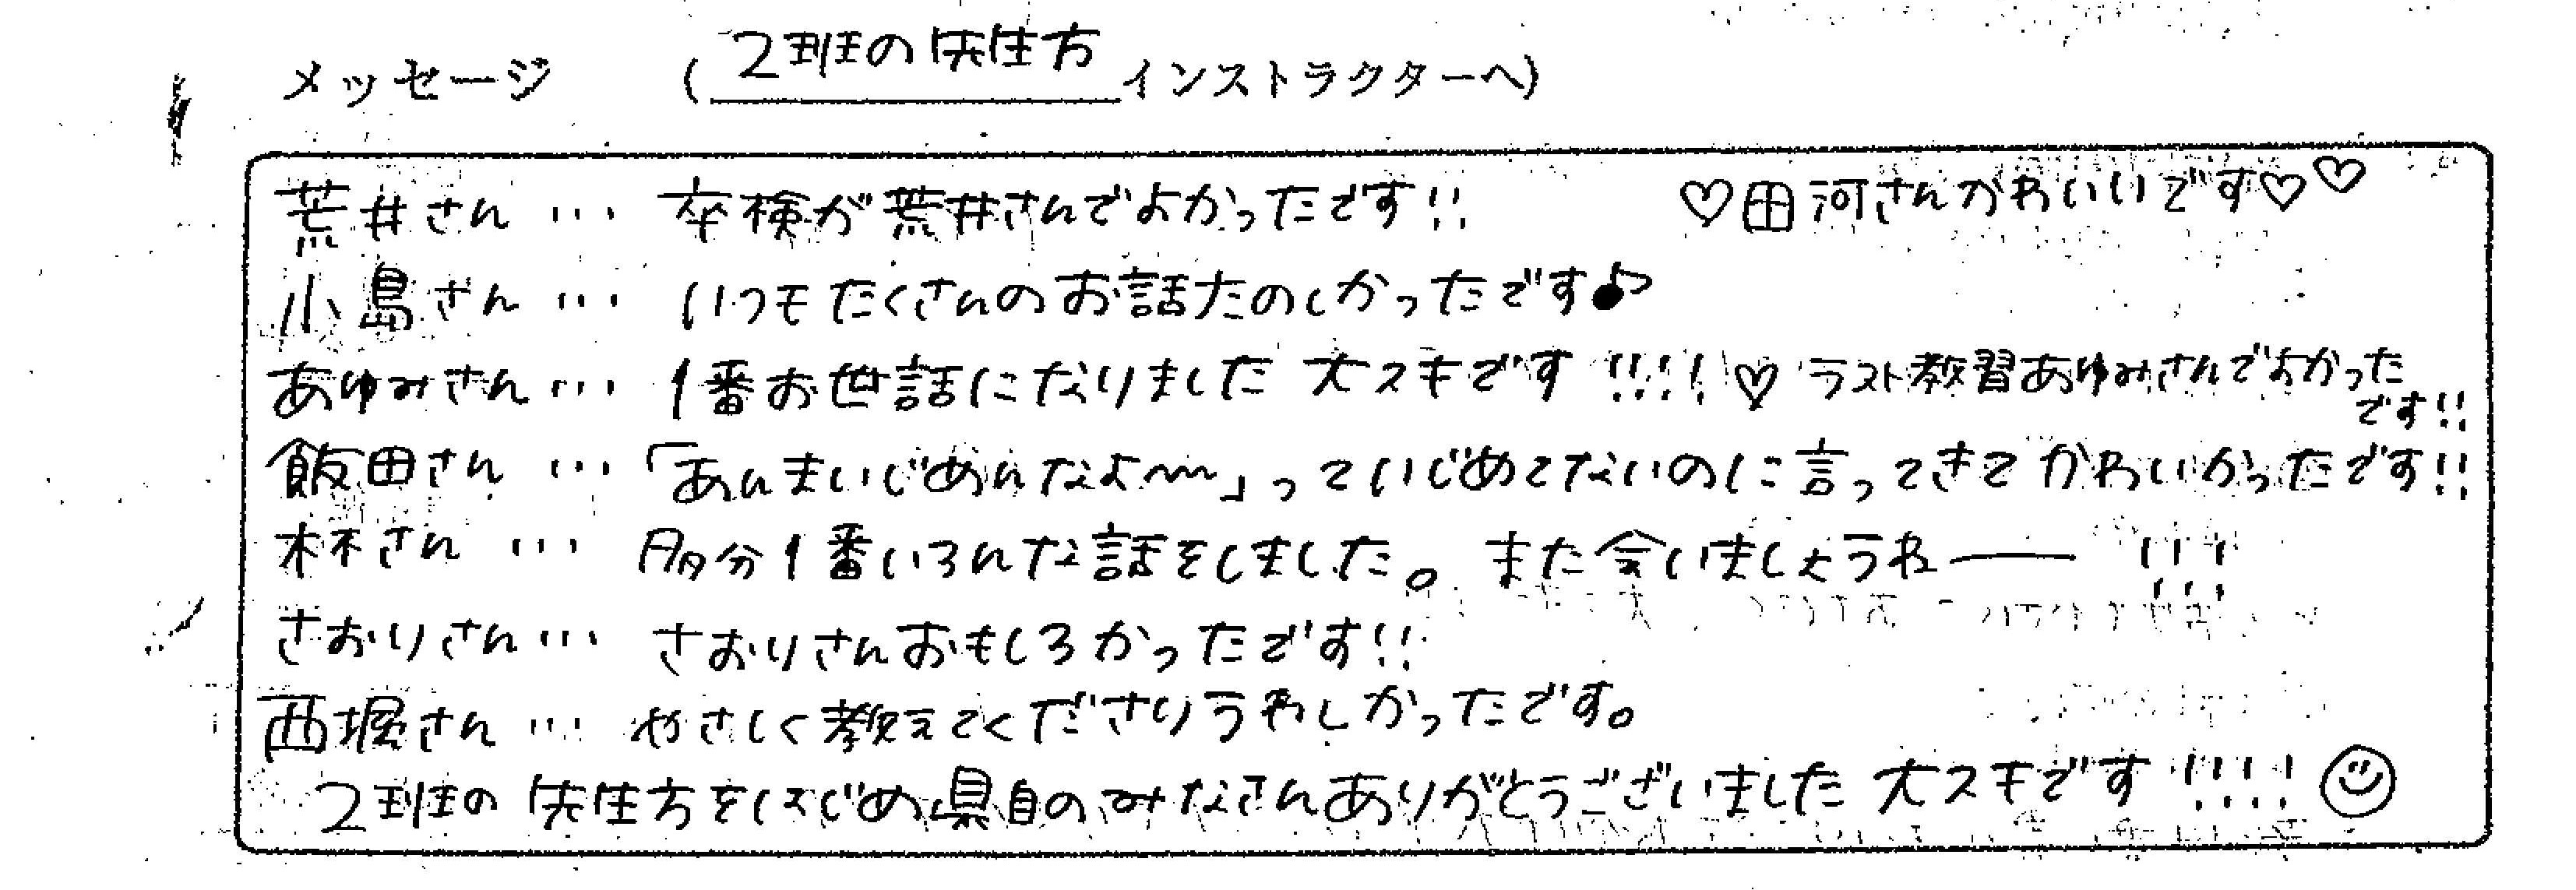 メッセージ (2班の先生方インストラクターへ)
荒井さん… 卒検が荒井さんでよかったです!! ♡田河さんかわいいです♡♡
小島さん… いつもたくさんのお話たのしかったです♪
あゆみさん… 1番お世話になりました 大スキです!!!!♡ ラスト教習あゆみさんでよかった
です!!
飯田さん… 「あんまいじめんなよ〜」っていじめてないのに言ってきてかわいかったです!!
林さん… 多分1番いろんな話をしました。また会いましょうねー!!!
さおりさん… さおりさんおもしろかったです!!
西堀さん… やさしく教えてくださりうれしかったです。
2班の先生方をはじめ県自のみなさんありがとうございました 大スキです!!!!